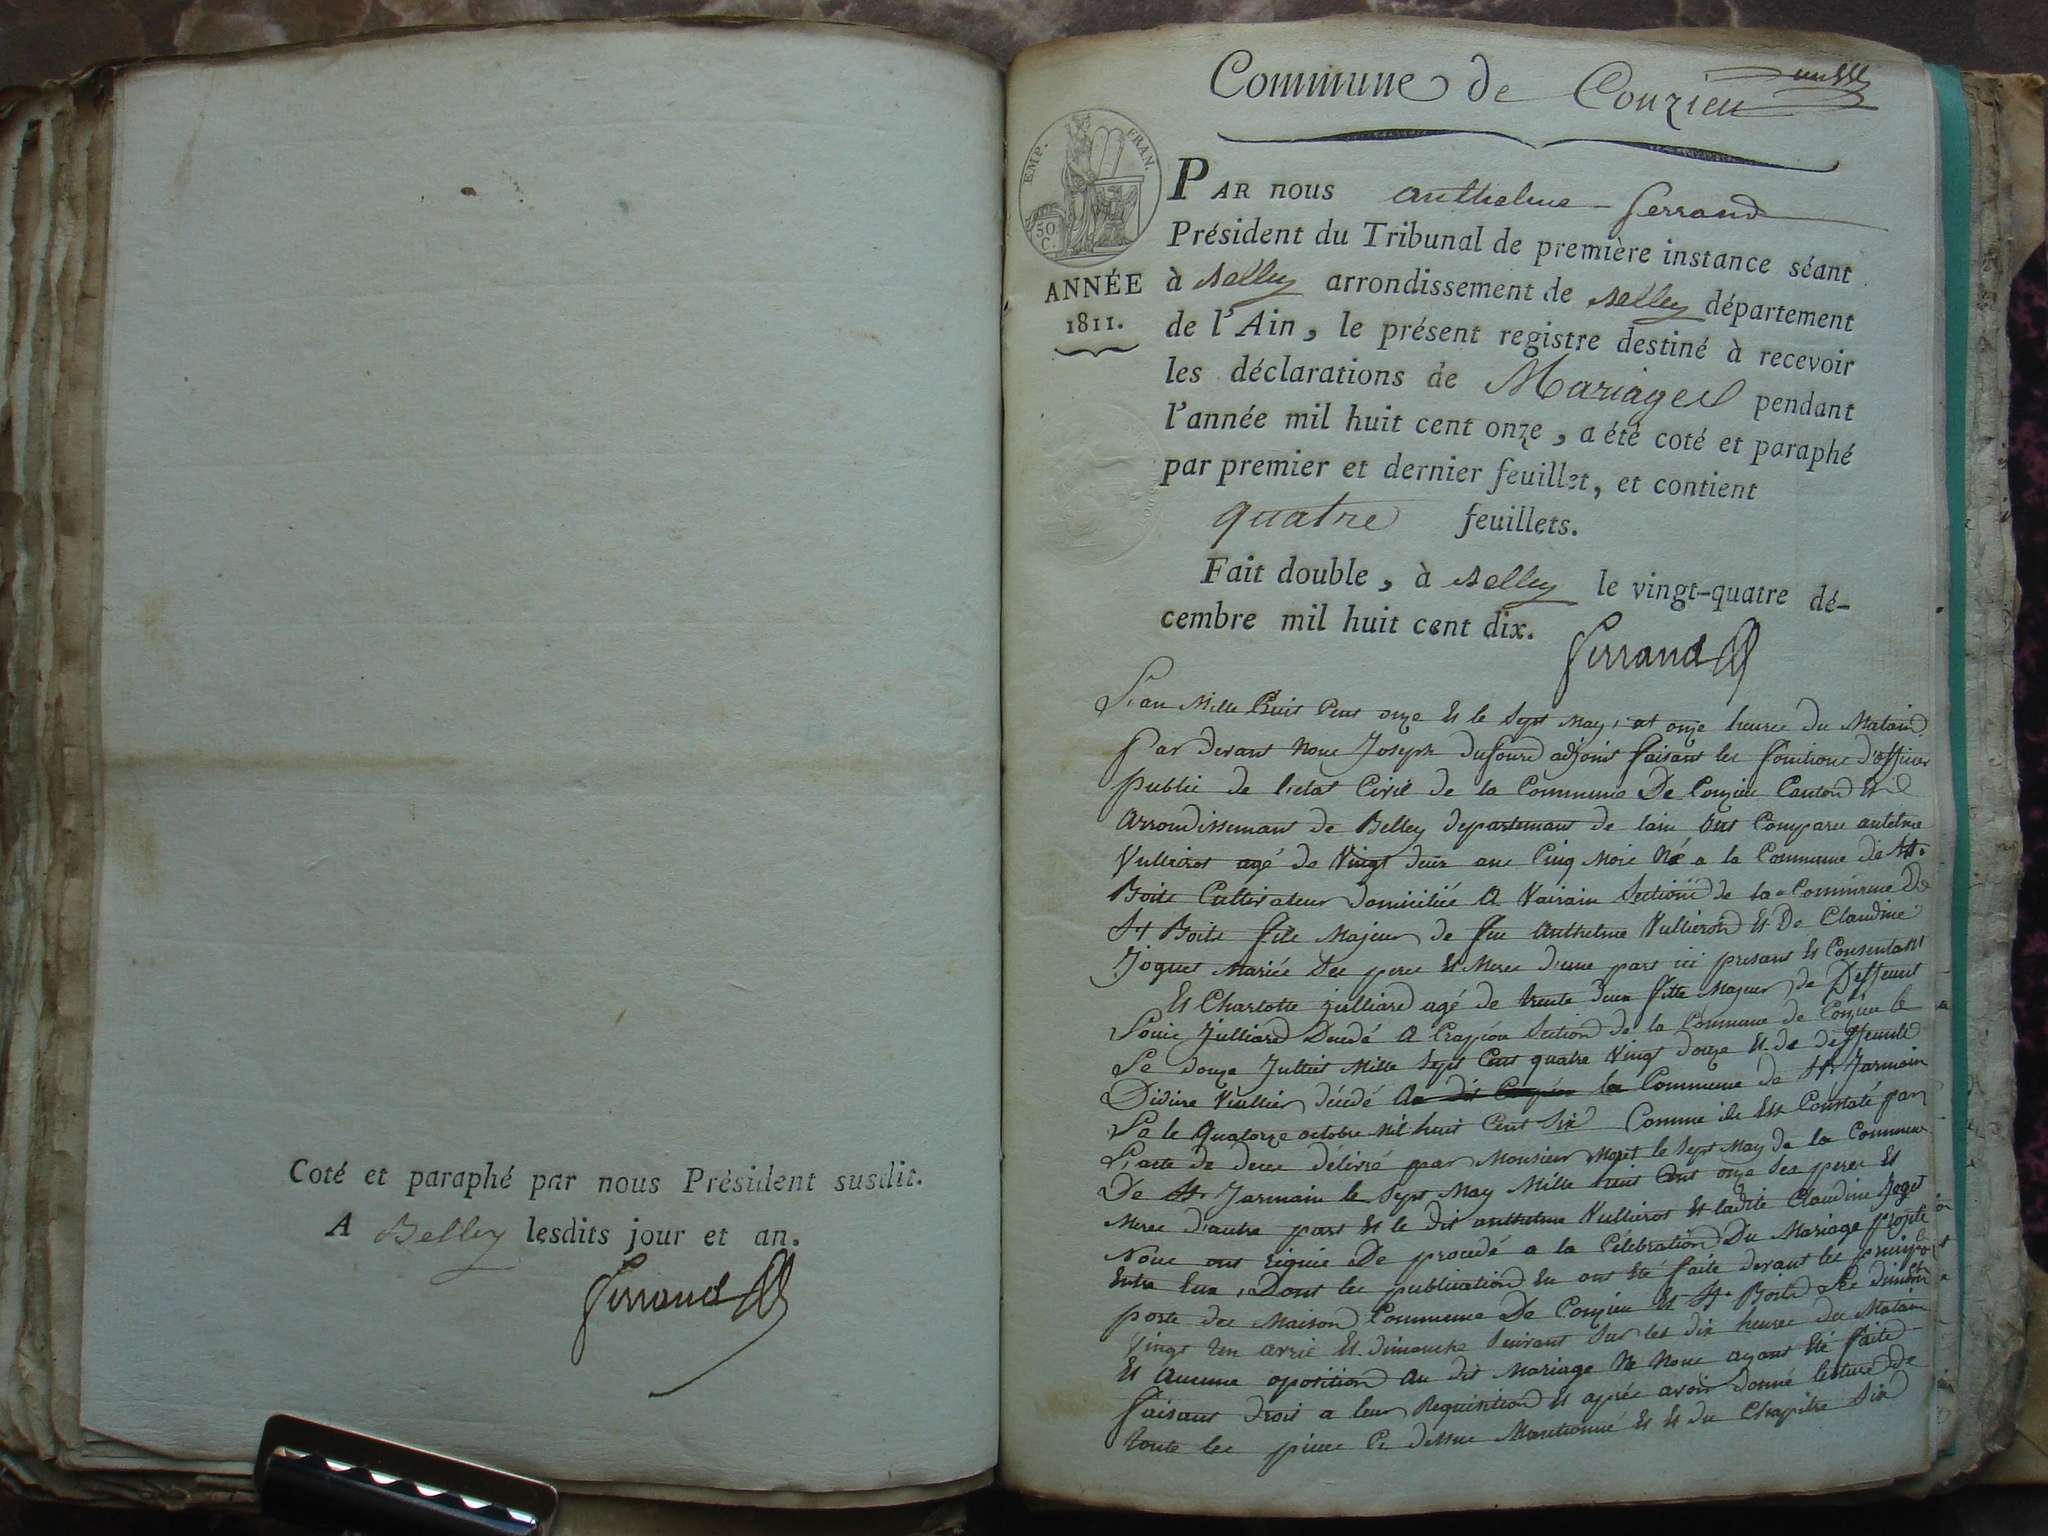 Coté et paraphé par nous Président susdit.
A Belley lesdits jour et an.
Ferrand
Commune de Conzieu
EMP. FRAN.
50 C.
ANNÉE
1811.
PAR nous anthelme ferrand
Président du Tribunal de première instance séant
à Belley arrondissement de Belley département
de l'Ain, le présent registre destiné à recevoir
les déclarations de Mariages pendant
l'année mil huit cent onze, a été coté et paraphé
par premier et dernier feuillet, et contient
quatre feuillets.
Fait double, à Belley le vingt-quatre dé-
cembre mil huit cent dix.
Ferrand
L'an Mille huit Cent onze Et le Sept May, at onze heures du Matain
Par devant Nous Joseph dufour adjoint faisant les fonctions d'officier
public de l'etat Civil de la Commune De Conzieu Canton Et
Arrondissemant de Belley departemant de lain Ont Comparu antelme
Vullierot agé de Vingt deux ans Cinq Mois Né a la Commune de St.
Boits Cultivateur domicilié A Vairain Section de la Commune De
St Boits fils Majeur de feu Anthelme Vullierot Et De Claudine
Joguet Mariée Des pere Et Mere d'une part ici presant Et Consentant
Et Charlotte Julliard agé de trente deux fille Majeur de Deffunt
Louis Julliard Decedé A Crapéou Section de la Commune de Conzieu le
Le douze Julliet Mille Sept Cent quatre Vingt douze Et de deffunte
Didiere Vullier décédé la Commune de St. Jarmain
La le Quatorze octobre Mil huit Cent Six Comme ils Est Constaté par
L'acte de deces délivré par Monsieur Moret le Sept May de la Commune
De St. Jarmain le Sept May Mille huit Cent onze Ses peres Et
Mere d'autre part Et le dit anthelme Vullierot Et ladite Claudine Joget
Nous ont riquis De procedé a la Célébration Du Mariage projeté
Entre Eux, Dont les publication En ont Eté faite devant les principal
porte des Maison Commune De Conzieu Et St. Boits Les dimanche
Vingt Un avril Et dimanche Suivant Sur les dix heures du Matain
Et Aucune oposition Au dit Mariage Ne Nous ayant Eté faite
faisant droit a leur Requisition Et après avoir donné lecture de
toute les piece Ci dessus Mantionné Et Et du Chapitre Six